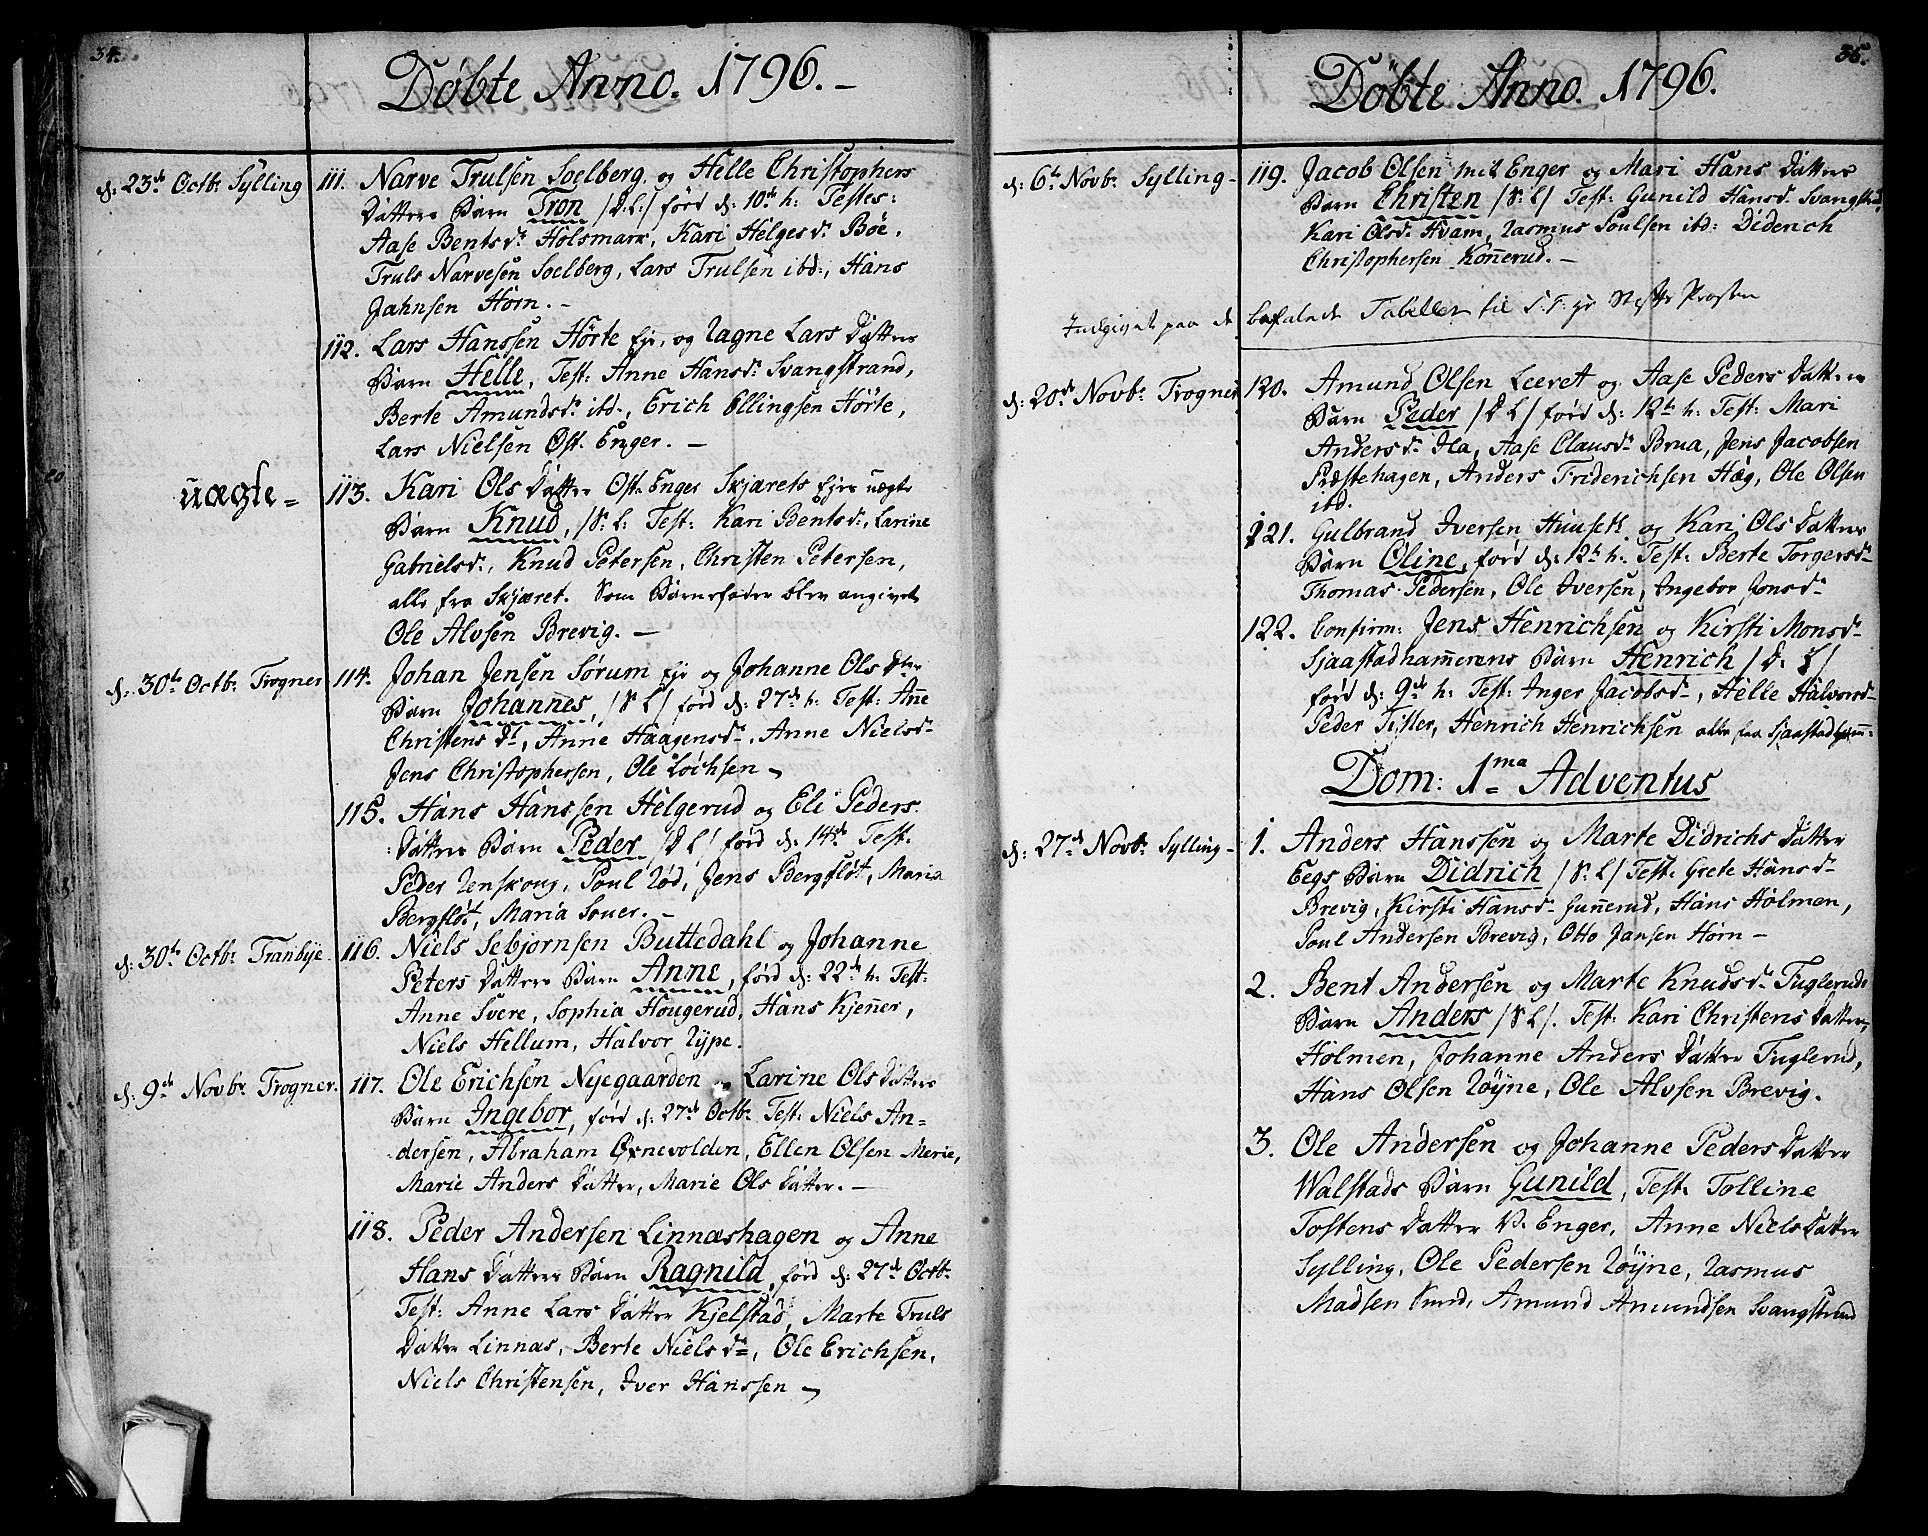 34.
Döbte Anno. 1796. –
d: 23de Octbr Sylling
111. Narve Trulsen Soelberg og Helle Christophers
Datters Barn Tron /:D:L:/ förd d: 10de h: Testes:
Aase Bentsdr Holsmark, Kari Helgesdr Böe,
Truls Narvesen Soelberg, Lars Trulsen ibd:, Hans
Jahnsen Horn. –
112. Lars Hanssen Hörte Eje, og Ragne Lars Datters
Barn Helle, Test: Anne Hansdr Svangstrand,
Berte Amundsdr ibd., Erich Ellingsen Hörte,
Lars Nielsen Ost. Enger. –
uægte =
113. Kari Ols Datter Ost. Enger Skjærets Ejes uægte
Barn Knud, /S: L: Test: Kari Bentsdr, Larine
Gabrielsdr, Knud Petersen, Christen Petersen,
alle fra Skjæret. Som Barnefader blev angivet
Ole Alvsen Brevig. –
d: 30te Octbr Frogner
114. Johan Jensen Sörum Eje og Johanne Ols Dtrs
Barn Johannes, /S L/ förd d: 27de h: Test: Anne
Christens Dr, Anne Haagensdr, Anne Nielsdr
Jens Christophersen, Ole Lochsen –
115. Hans Hanssen Helgerud og Eli Peders
Datters Barn Peder /D L/ förd d: 14de Test:
Peder Renskoug, Poul Röd, Jens Bergflöt, Maria
Bergflöt, Maria Souer. –
d: 30te Octbr Tranbye.
116. Niels Sebjornsen Buttedahl og Johanne
Peters Datters Barn Anne, förd d: 22de h: Test:
Anne Svere, Sophia Hougerud, Hans Kjenner,
Niels Hellum, Halvor Rype.
d: 9de Novbr Frogner.
117. Ole Erichsen Nyegaarden og Larine Ols Datters
Barn Ingebor, förd d: 27de Octbr Test: Niels An=
dersen, Abraham Örnevolden, Ellen Olsen Merie,
Marie Anders Datter, Marie Ols Datter. –
118. Peder Andersen Linnæshagen og Anne
Hans Datters Barn Ragnild, förd d: 27de Octbr
Test: Anne Lars Datter Kjelstad, Marte Truls
Datter Linnæs, Berte Nielsdr, Ole Erichsen,
Niels Christensen, Iver Hanssen –
35.
Döbte Anno. 1796.
d: 6te Novbr Sylling –
119. Jacob Olsen Enger og Mari Hans Datters
Barn Christen /S: L/ Test: Gunild Hansd. Svangstrd,
Kari Olsdr Hvam, Rasmus Poulsen ibd: Diderich
Christophersen Konnerud. –
Indgivet paa de befalede Tabeller til Provsten
d: 20de Novbr Frogner
120. Amund Olsen Leeret og Aase Peders Datters
Barn Peder /D L/ förd d: 12te h: Test: Mari
Andersdr Ila, Aase Clausdr Brua, Jens Jacobsen
Præstehagen, Anders Friderichsen Hæg, Ole Olsen
ibd.
121. Gulbrand Iversen Huuseth og Kari Ols Datters
Barn Oline, förd d: 12te h: Test: Berte Torgersdr
Thomas Pedersen, Ole Iversen, Ingebor Jonsdr
122. Confirm: Jens Henrichsen og Kirsti Monsdr
Sjaastadhammerens Barn Henrich /D: L/
förd d: 9de h: Test: Inger Jacobsdr, Helle Halvorsdr
Peder Fisker, Henrich Henrichsen alle fra Sjaastadham=
Dom: 1ma Adventus
d: 27de Novbr Sylling –
1. Anders Hanssen og Marte Didrichs Datter
Eegs Barn Didrich /S: L/ Test: Grete Hansdr
Brevig, Kirsti Hansdr Gunnerud, Hans Holmen,
Poul Andersen Brevig, Otto Jansen Horn –
2. Bent Andersen og Marte Knudsdr Fuglerud
Barn Anders /S L/. Test: Kari Christens Datter,
Holmen, Johanne Anders Datter Fuglerud,
Hans Olsen Röyne, Ole Alvsen Brevig.
3. Ole Andersen og Johanne Peders Datter
Walstads Barn Gunild, Test: Tolline
Tostens Datter V. Enger, Anne Niels Datter
Sylling, Ole Pedersen Röyne, Rasmus
Madsen Lund, Amund Amundsen Svangstrand